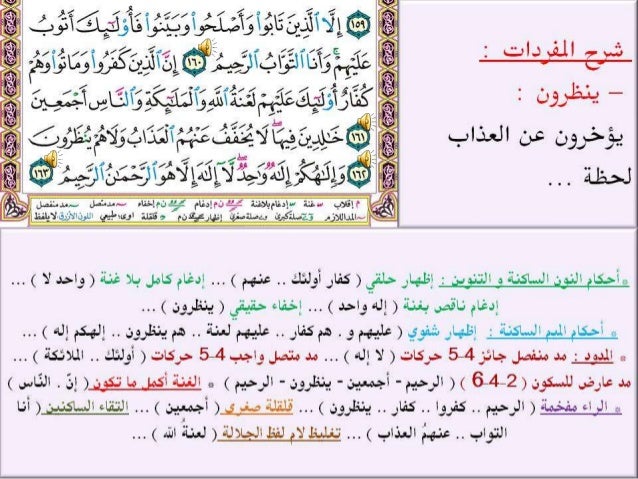 ١٥٩ إِلَّا ٱلَّذِينَ تَابُوا۟ وَأَصْلَحُوا۟ وَبَيَّنُوا۟ فَأُو۟لَٰٓئِكَ أَتُوبُ
عَلَيْهِمْ ۚ وَأَنَا ٱلتَّوَّابُ ٱلرَّحِيمُ ١٦٠ إِنَّ ٱلَّذِينَ كَفَرُوا۟ وَمَاتُوا۟ وَهُمْ
كُفَّارٌ أُو۟لَٰٓئِكَ عَلَيْهِمْ لَعْنَةُ ٱللَّهِ وَٱلْمَلَٰٓئِكَةِ وَٱلنَّاسِ أَجْمَعِينَ
١٦١ خَٰلِدِينَ فِيهَا ۖ لَا يُخَفَّفُ عَنْهُمُ ٱلْعَذَابُ وَلَا هُمْ يُنظَرُونَ
١٦٢ وَإِلَٰهُكُمْ إِلَٰهٌ وَٰحِدٌ ۖ لَّآ إِلَٰهَ إِلَّا هُوَ ٱلرَّحْمَٰنُ ٱلرَّحِيمُ ١٦٣
شرح المفردات :
– ينظرون :
يؤخرون عن العذاب
لحظة ...
* أحكام النون الساكنة و التنوين : إظهار حلقي ( كفار أولئك .. عنهم ) ... إدغام كامل بلا غنة ( واحد لا ) ...
إدغام ناقص بغنة ( إله واحد ) ... إخفاء حقيقي ( ينظرون ) ...
* أحكام الميم الساكنة : إظهار شفوي ( عليهم و . هم كفار .. عليهم لعنة .. هم ينظرون .. إلهكم إله ) ...
* المدود : مد منفصل جائز 4-5 حركات ( لا إله ) ... مد متصل واجب 4-5 حركات ( أولئك .. الملائكة ) ...
مد عارض للسكون ( 2-4-6 ) ( الرحيم - أجمعين - ينظرون - الرحيم ) * الغنة أكمل ما تكون ( إنّ . النّاس )
* الراء مفخمة ( الرحيم .. كفروا .. كفار .. ينظرون ) ... قلقلة صغرى ( أجمعين ) ... التقاء الساكنين ( أنا
التواب .. عنهمُ العذاب ) ... تغليظ لام لفظ الجلالة ( لعنةُ الله ) ...